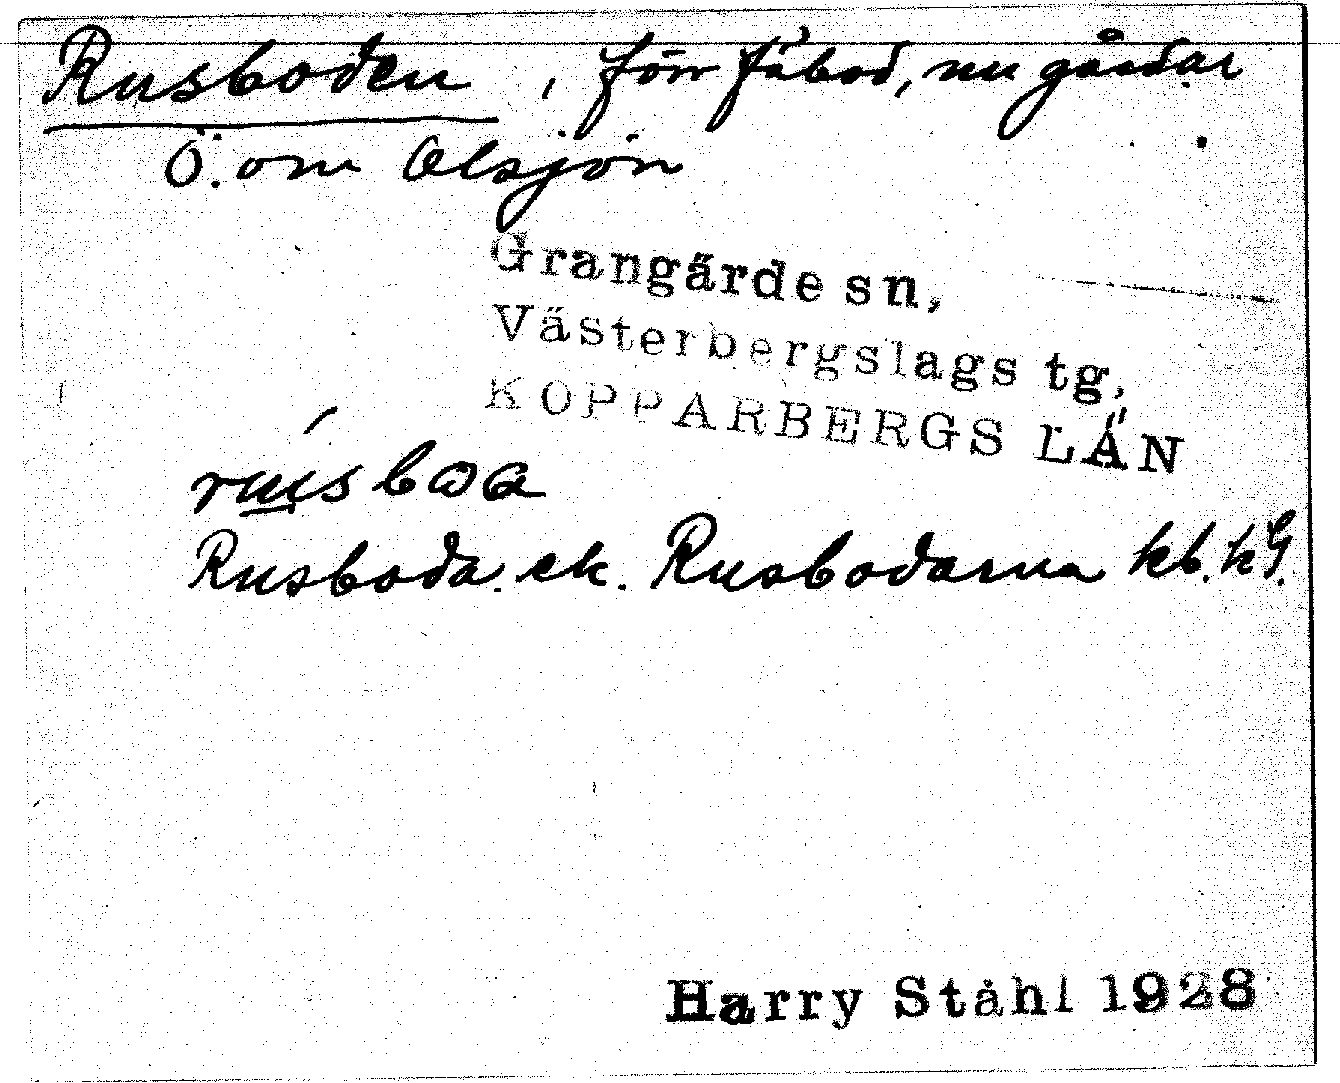 Rusboden, förr fäbod, nu gårdar
Ö. om Olsjön
Grangärde sn,
Västerbergslags tg,
KOPPARBERGS LÄN
Rusboda. ek. Rusbodarna kb. kG.
Harry Ståhl 1928